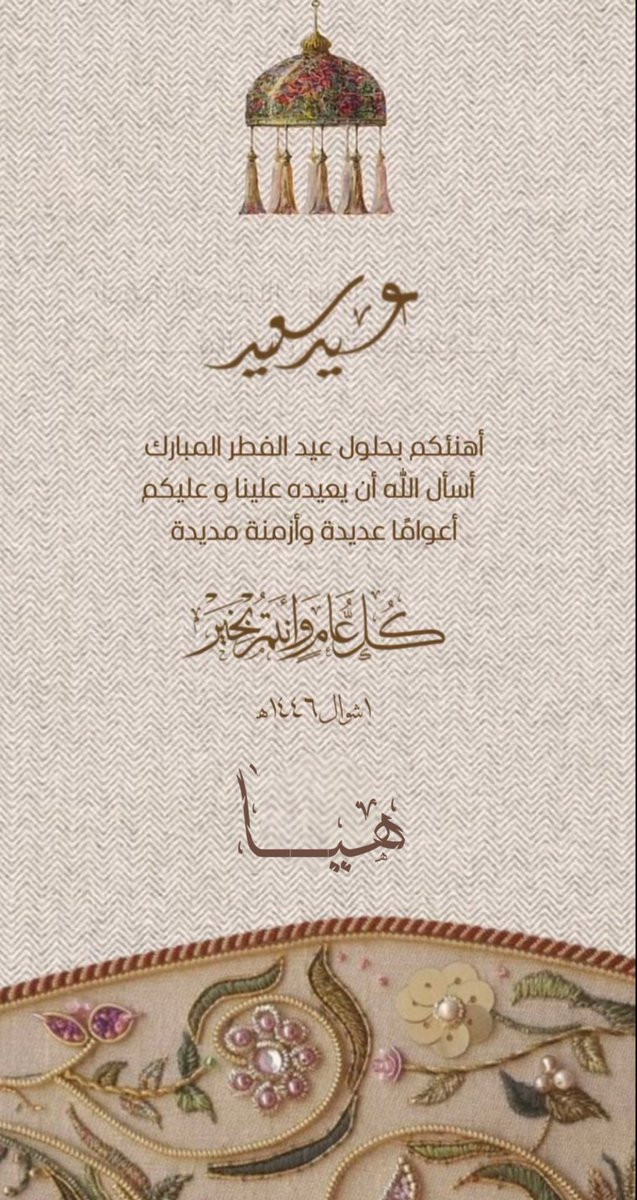 عيد سعيد
أهنئكم بحلول عيد الفطر المبارك
أسأل الله أن يعيده علينا و عليكم
أعوامًا عديدة وأزمنة مديدة
كُلُّ عَامٍ وَأَنتُمْ بِخَيْرٍ
١ شوال ١٤٤٦هـ
هيا